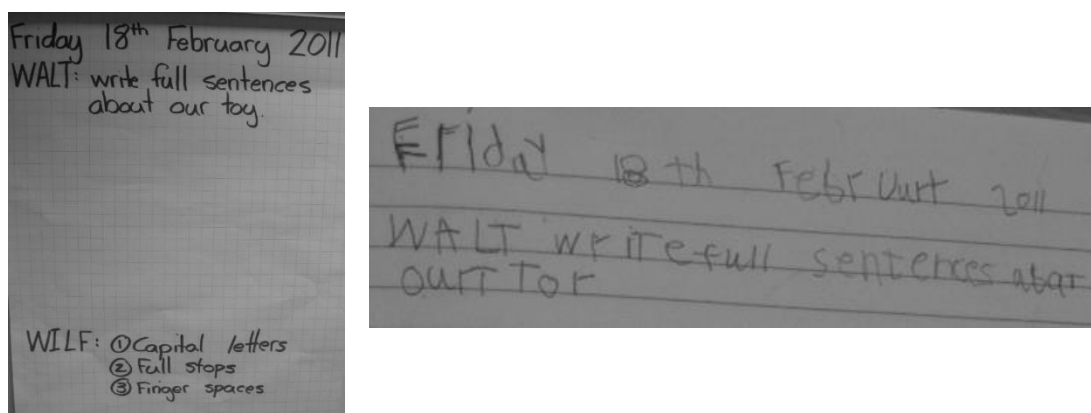 Friday 18th February 2011
WALT: write full sentences
about our toy.
WILF: ① Capital letters
② Full stops
③ Finger spaces
Friday 18th Februrt 2011
WALT write full sentences abat
ourT Tor